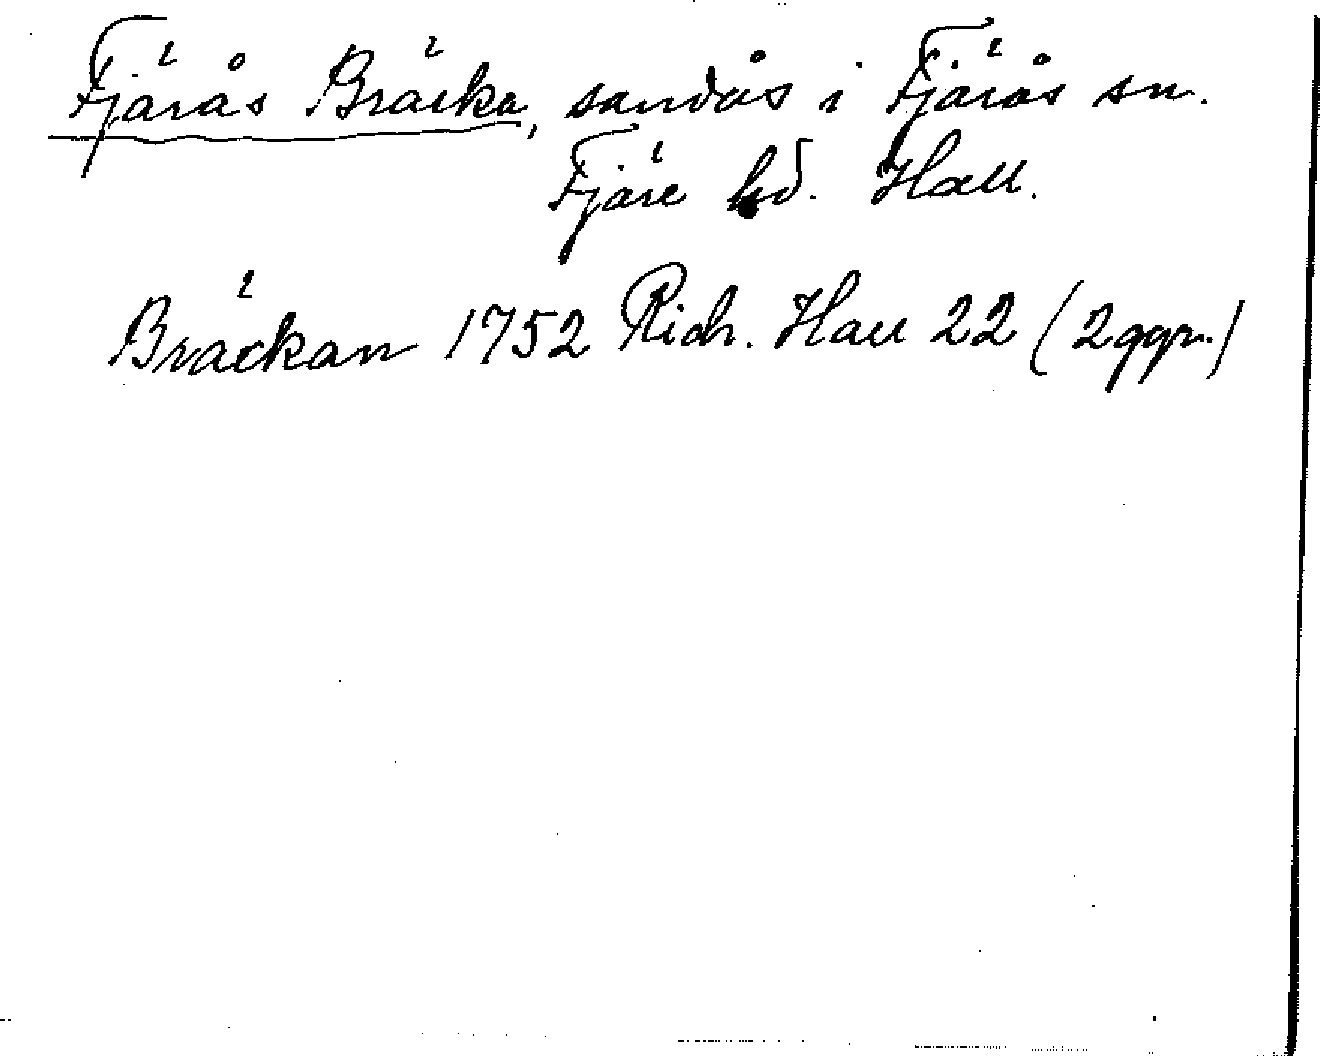 Fjärås Bräcka, sandås i Fjärås sn.
Fjäre hd. Hall.
Bräckan 1752 Rich. Hall 22 (2 ggr.)